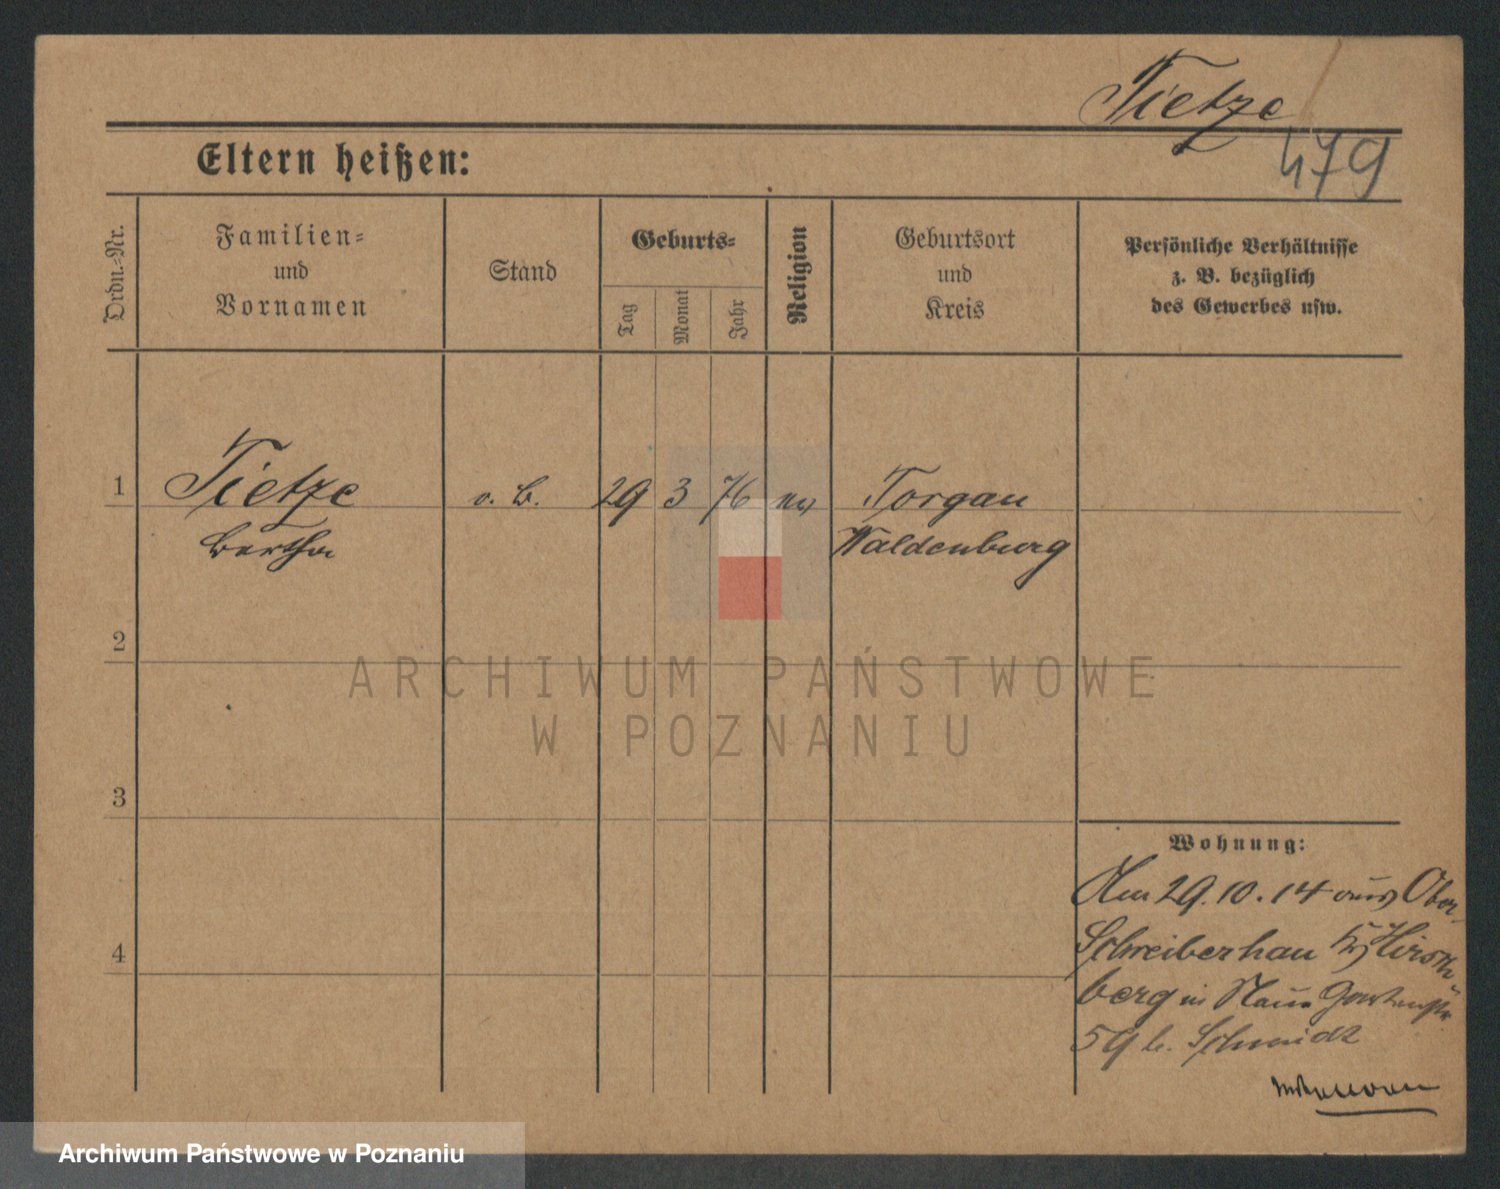 Tietze
479
Eltern heißen:
Ordn.-Nr.
Familien-
und
Vornamen
Stand
Geburts-
Tag
Monat
Jahr
Religion
Geburtsort
und
Kreis
Persönliche Verhältnisse
z. B. bezüglich
des Gewerbes usw.
1
Tietze
o. B.
29
3
76
Torgau
Bertha
Waldenburg
2
3
4
Wohnung:
Am 29.10.14 aus Ober-
Schreiberhau Hirsch
berg in
59 b. Schmidt
ARCHIWUM PAŃSTWOWE
W POZNANIU
Archiwum Państwowe w Poznaniu